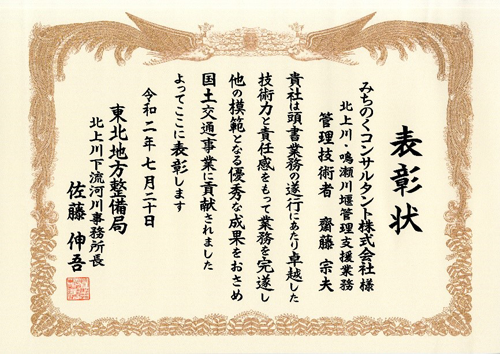 表彰状
みちのくコンサルタント株式会社 様
北上川・鳴瀬川堰管理支援業務
管理技術者 齋藤 宗夫
貴社は頭書業務の遂行にあたり卓越した
技術力と責任感をもって業務を完遂し
他の模範となる優秀な成果をおさめ
国土交通事業に貢献されました
よってここに表彰します
令和二年七月二十日
東北地方整備局
北上川下流河川事務所長
佐藤 伸吾